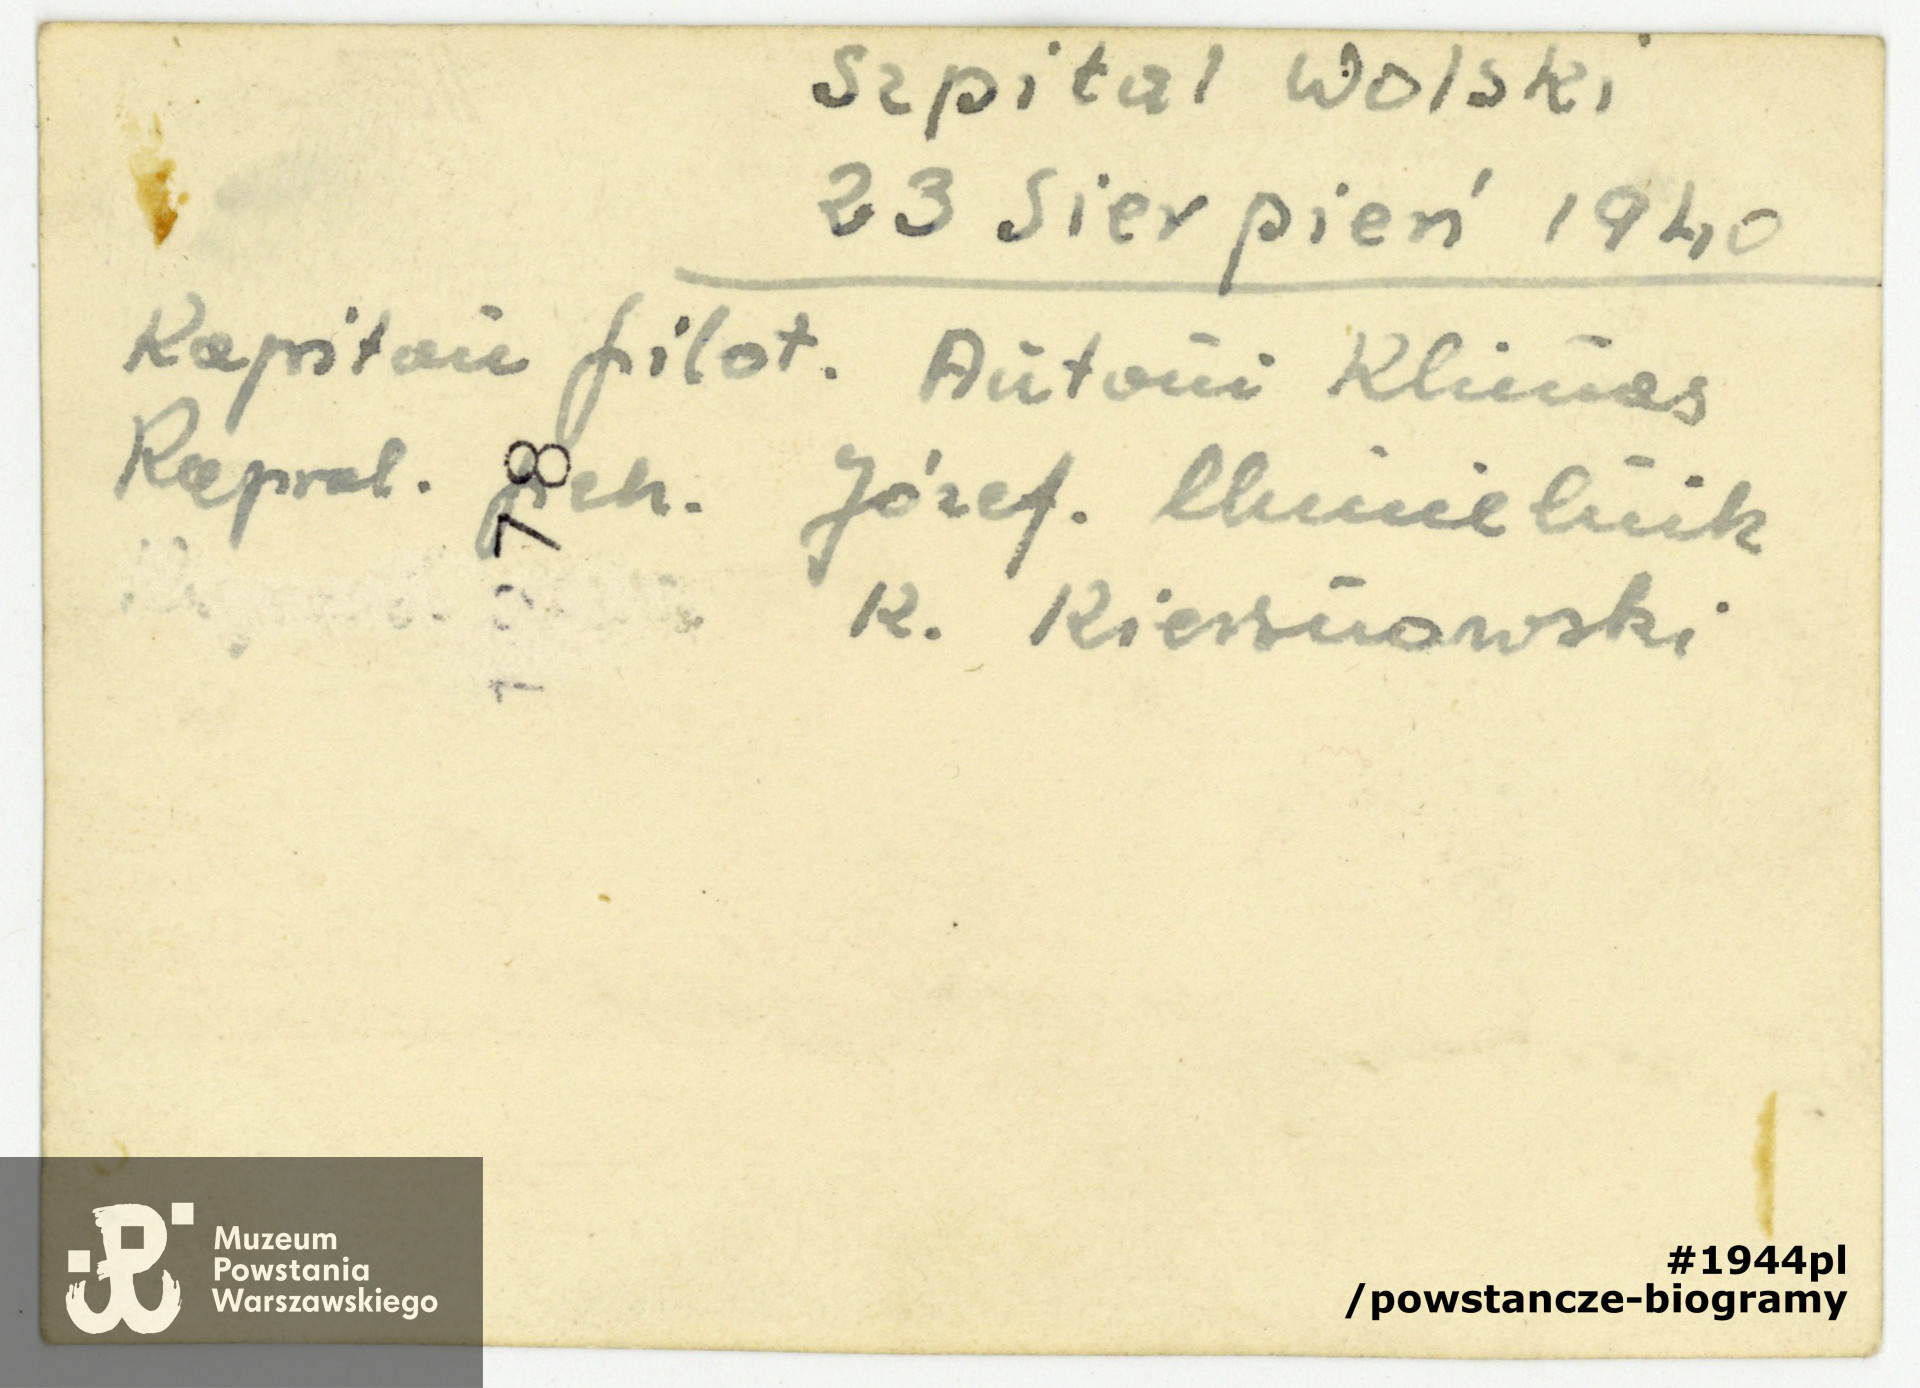 Szpital Wolski
23 Sierpień 1940
Kapitan pilot. Antoni Klimas
Kapral. pch. Józef. Chmielnik
K. Kiersnowski
1978
Muzeum
Powstania
Warszawskiego
#1944pl
/powstancze-biogramy